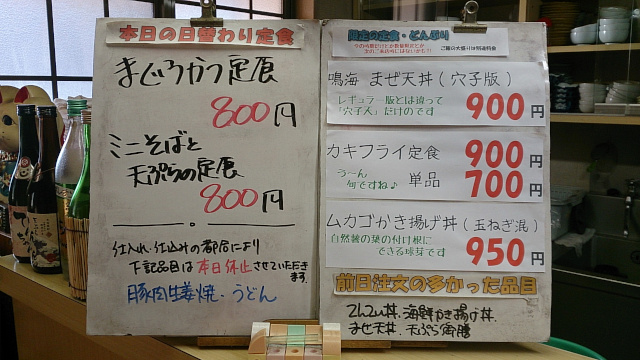 本日の日替わり定食
まぐろかつ定食
800円
ミニそばと
天ぷらの定食
800円
仕入れ、仕込みの都合により
下記品目は本日休止させていただき
ます。
豚肉生姜焼・うどん
限定の定食・どんぶり
ご飯の大盛りは別途料金
鳴海 まぜ天丼(穴子版)
レギュラー版とは違って
「穴子入」だけのです
900円
カキフライ定食 900円
う〜ん
何ですね♪
単品 700円
ムカゴかき揚げ丼(玉ねぎ混)
自然薯の葉の付け根に
できる球芽です
950円
前日注文の多かった品目
てんこ丼、海鮮かき揚げ丼、
まぜ天丼、天ぷら御膳